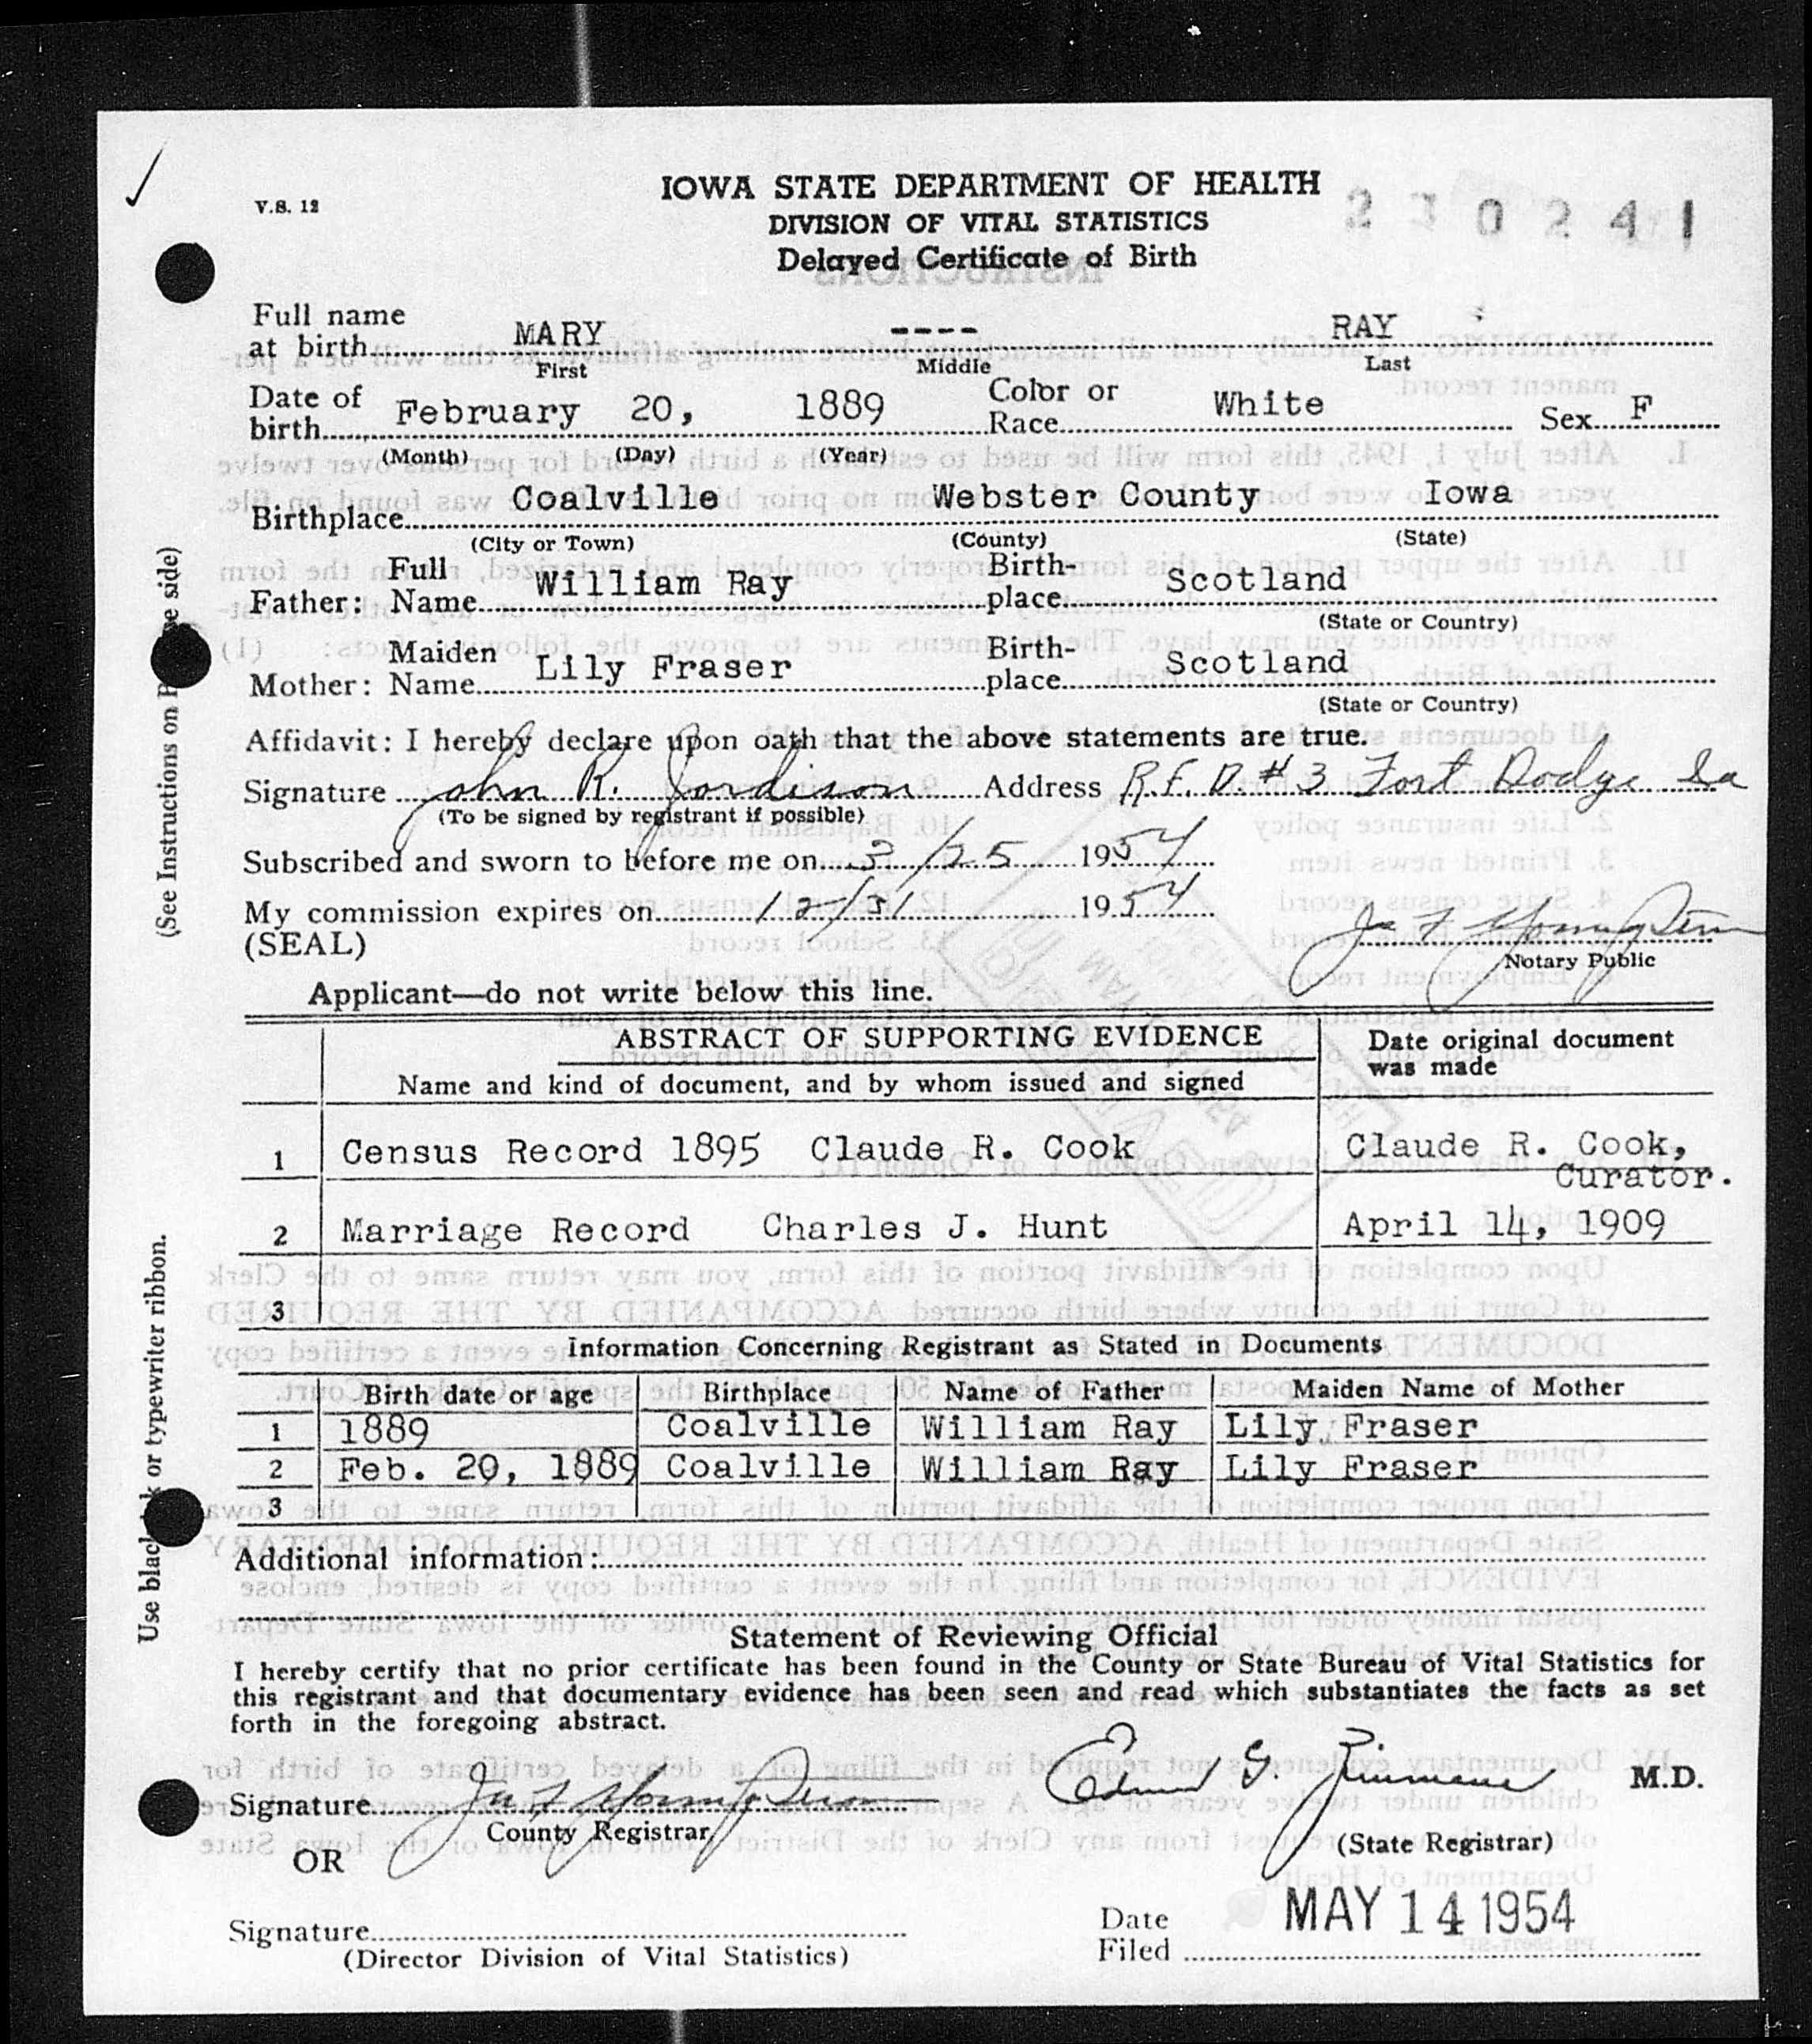 V.S. 12
IOWA STATE DEPARTMENT OF HEALTH
DIVISION OF VITAL STATISTICS
Delayed Certificate of Birth
0 2 4 1
Full name
at birth MARY ---- RAY
First Middle Last
Date of
birth February 20, 1889 Color or
Race White Sex F
(Month) (Day) (Year)
Birthplace Coalville Webster County Iowa
(City or Town) (County) (State)
Father: Full
Name William Ray Birth-
place Scotland
(State or Country)
Mother: Maiden
Name Lily Fraser Birth-
place Scotland
(State or Country)
Affidavit: I hereby declare upon oath that the above statements are true.
Signature John R. Jordison Address R.F.D. #3 Fort Dodge Ia
(To be signed by registrant if possible)
Subscribed and sworn to before me on 3/25 1954
My commission expires on 12/31 1954
(SEAL)
Notary Public
Applicant—do not write below this line.
ABSTRACT OF SUPPORTING EVIDENCE
Name and kind of document, and by whom issued and signed
Date original document
was made
1 Census Record 1895 Claude R. Cook Claude R. Cook,
Curator.
2 Marriage Record Charles J. Hunt April 14, 1909
3
Information Concerning Registrant as Stated in Documents
Birth date or age Birthplace Name of Father Maiden Name of Mother
1 1889 Coalville William Ray Lily Fraser
2 Feb. 20, 1889 Coalville William Ray Lily Fraser
3
Additional information:
Statement of Reviewing Official
I hereby certify that no prior certificate has been found in the County or State Bureau of Vital Statistics for
this registrant and that documentary evidence has been seen and read which substantiates the facts as set
forth in the foregoing abstract.
Signature
County Registrar
Edmund G. Zimmerer M.D.
(State Registrar)
OR
Signature
(Director Division of Vital Statistics)
Date
Filed MAY 14 1954
(See Instructions on
side)
Use
or typewriter ribbon.